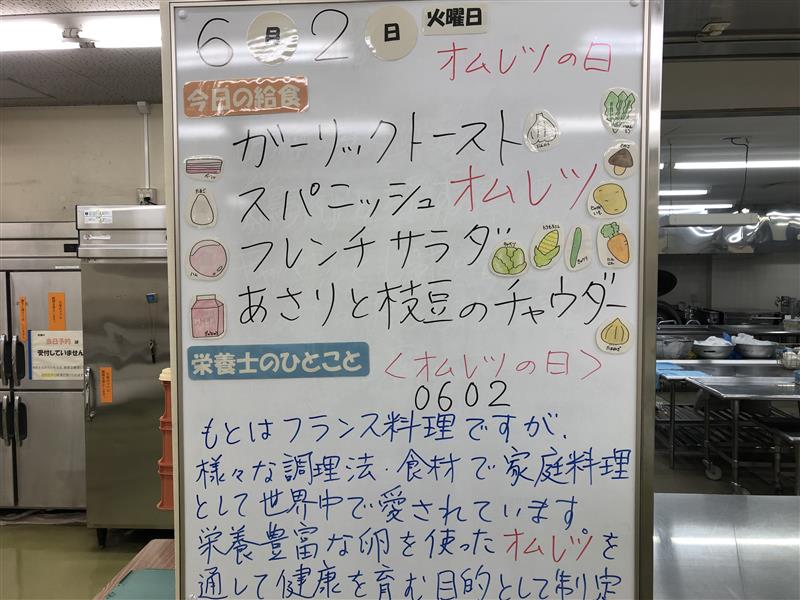 6月2日 火曜日
オムレツの日
今日の給食
ガーリックトースト
スパニッシュオムレツ
フレンチサラダ
あさりと枝豆のチャウダー
栄養士のひとこと
<オムレツの日>
0602
もとはフランス料理ですが、
様々な調理法・食材で家庭料理
として世界中で愛されています
栄養豊富な卵を使ったオムレツを
通して健康を育む目的として制定
当日予約は
受付していません